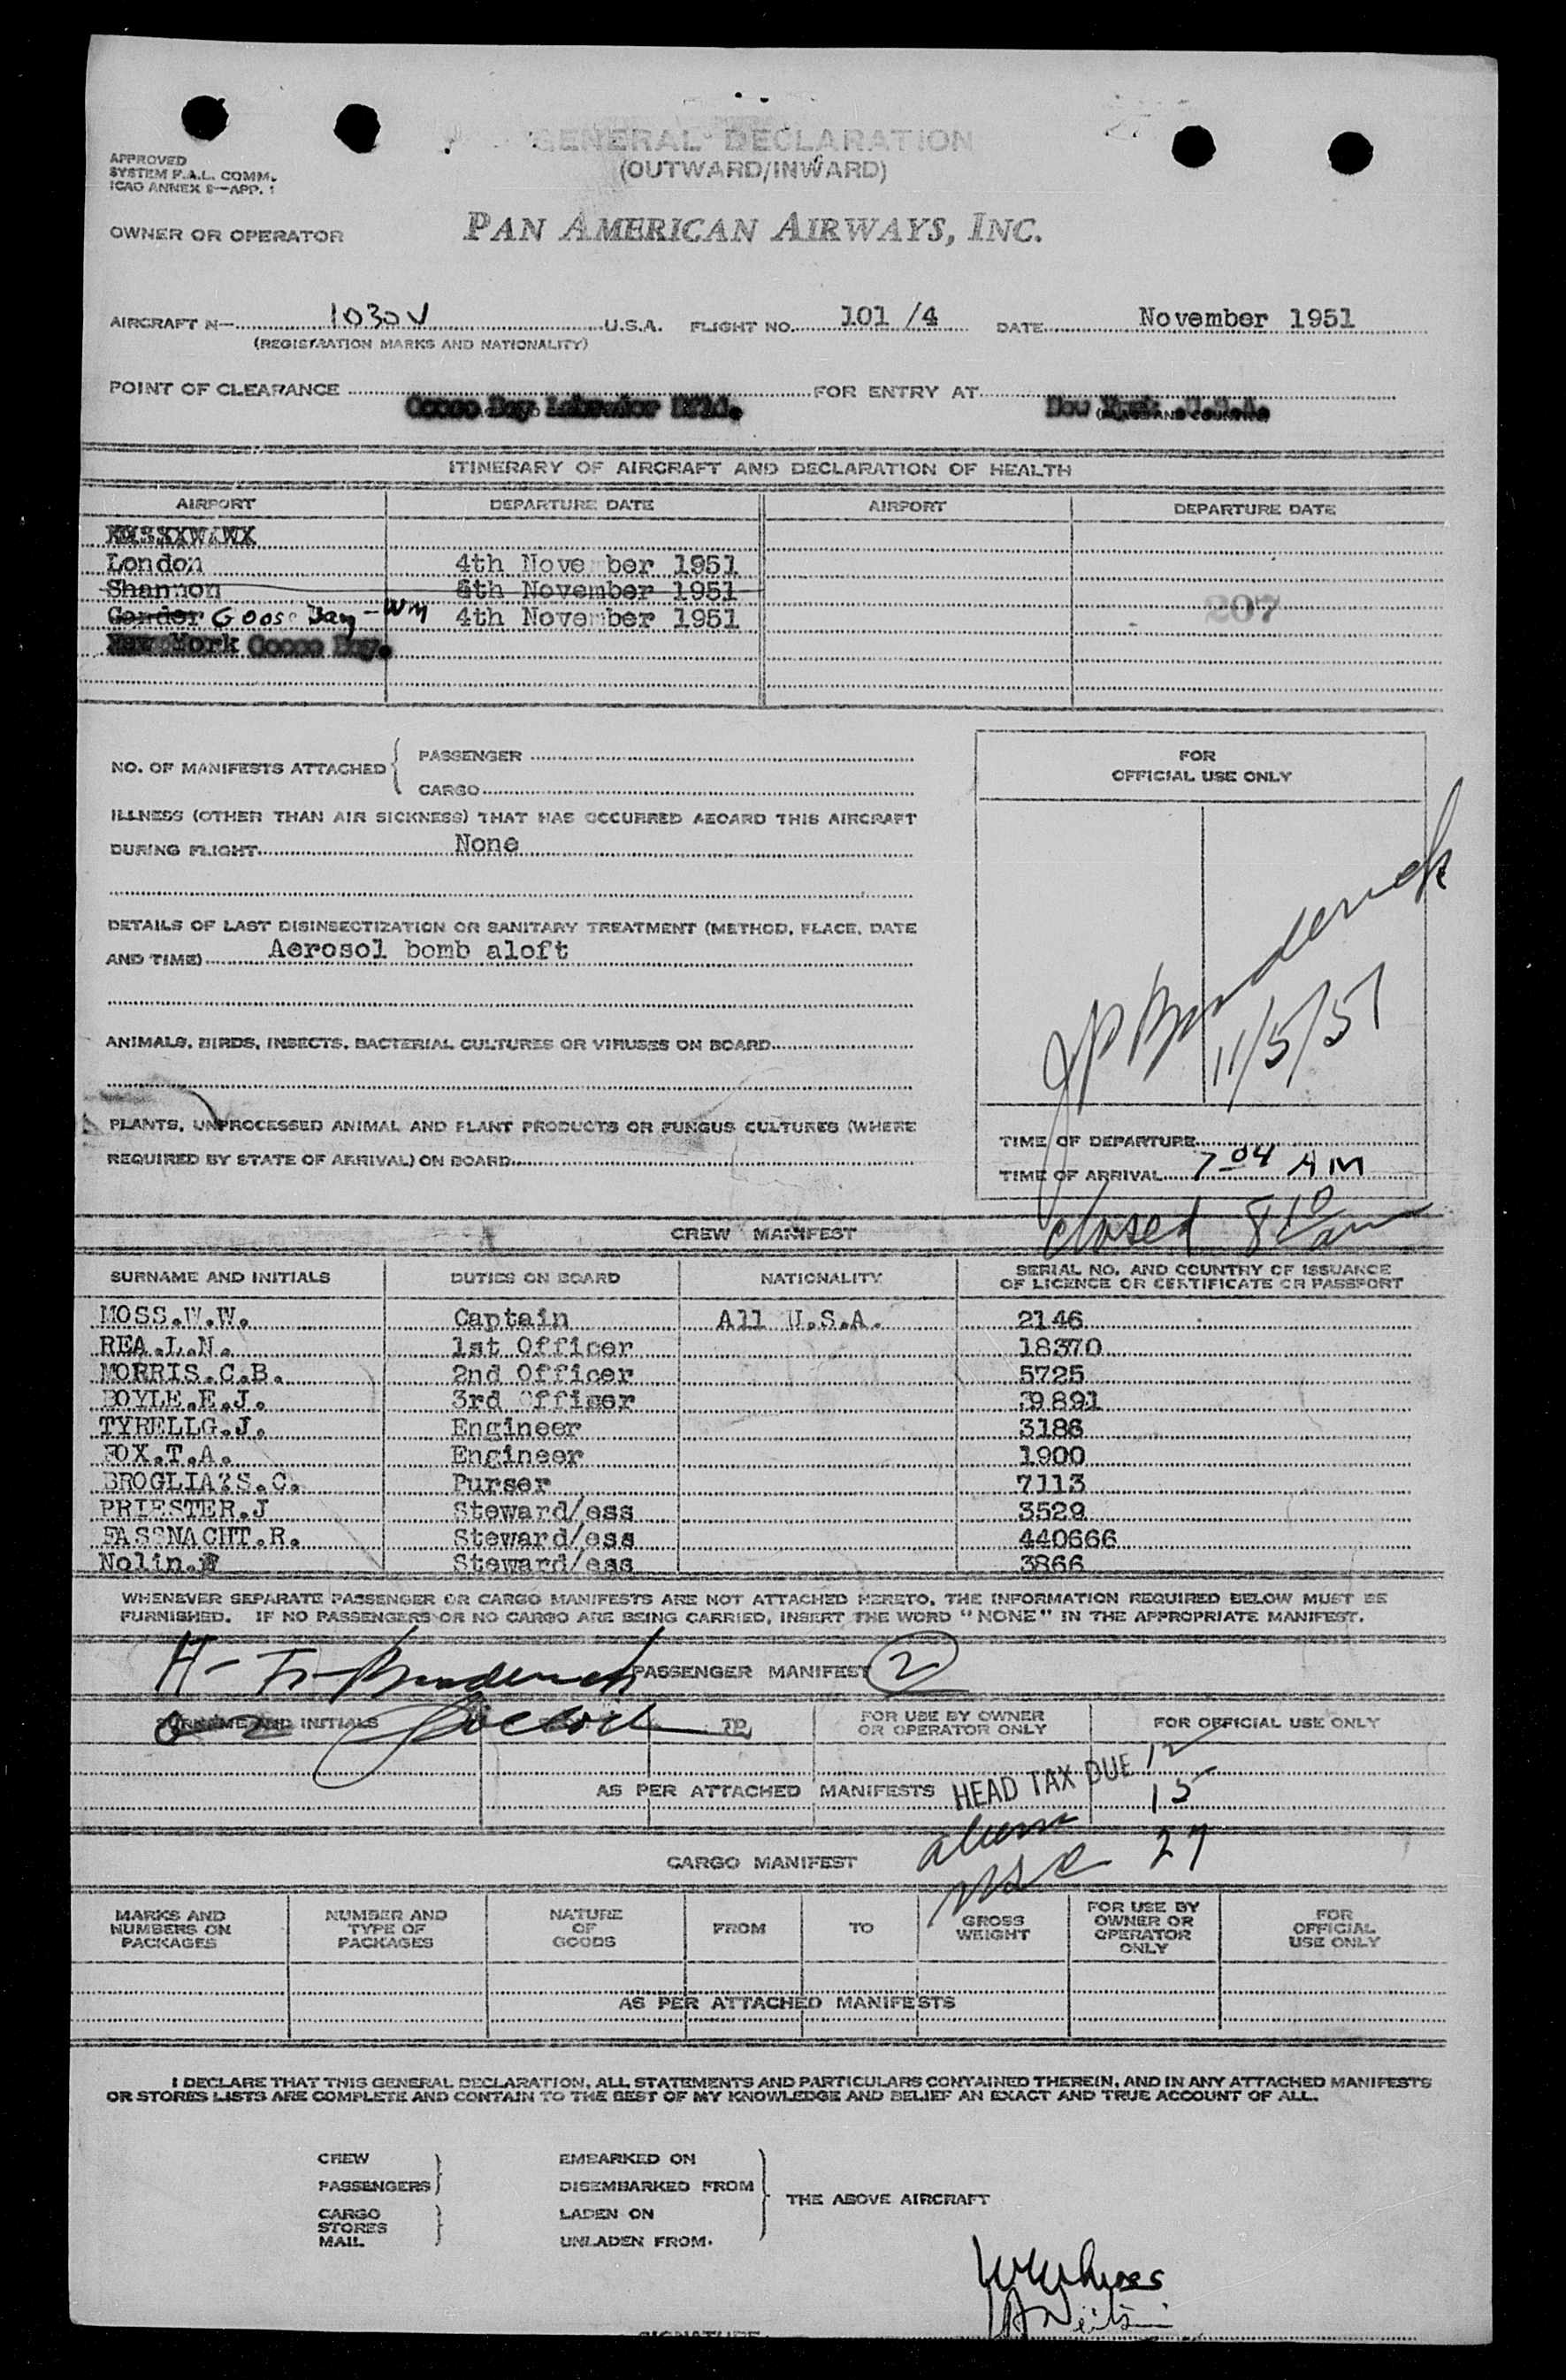 GENERAL DECLARATION
(OUTWARD/INWARD)
APPROVED
SYSTEM F.A.L. COMM.
ICAO ANNEX 9—APP. 1
OWNER OR OPERATOR PAN AMERICAN AIRWAYS, INC.
AIRCRAFT N— 1030V U.S.A. FLIGHT NO. 101 /4 DATE November 1951
(REGISTRATION MARKS AND NATIONALITY)
POINT OF CLEARANCE Goose Bay Labrador Nfld. FOR ENTRY AT New York U.S.A.
ITINERARY OF AIRCRAFT AND DECLARATION OF HEALTH
AIRPORT DEPARTURE DATE AIRPORT DEPARTURE DATE
London 4th Nove ber 1951
Shannon 5th November 1951
Gander Goose Bay - WM 4th Nove ber 1951
207
New York Goose Bay.
NO. OF MANIFESTS ATTACHED { PASSENGER
CARGO
FOR
OFFICIAL USE ONLY
ILLNESS (OTHER THAN AIR SICKNESS) THAT HAS OCCURRED ABOARD THIS AIRCRAFT
DURING FLIGHT None
DETAILS OF LAST DISINSECTIZATION OR SANITARY TREATMENT (METHOD, PLACE, DATE
AND TIME) Aerosol bomb aloft
JP Broderick
11/5/51
ANIMALS, BIRDS, INSECTS, BACTERIAL CULTURES OR VIRUSES ON BOARD
PLANTS, UNPROCESSED ANIMAL AND PLANT PRODUCTS OR FUNGUS CULTURES (WHERE
REQUIRED BY STATE OF ARRIVAL) ON BOARD
TIME OF DEPARTURE
TIME OF ARRIVAL 7 04 AM
closed 8 10 am
CREW MANIFEST
SURNAME AND INITIALS DUTIES ON BOARD NATIONALITY SERIAL NO. AND COUNTRY OF ISSUANCE
OF LICENCE OR CERTIFICATE OR PASSPORT
MOSS.W.W. Captain All U.S.A. 2146
REA.L.N. 1st Officer 18370
MORRIS.C.B. 2nd Officer 5725
BOYLE.E.J. 3rd Officer 39891
TYRELLG.J. Engineer 3186
FOX.T.A. Engineer 1900
BROGLIA?S.C. Purser 7113
PRIESTER.J Steward/ess 3529
FASSNACHT.R. Steward/ess 440666
Nolin. Steward/ess 3866
WHENEVER SEPARATE PASSENGER OR CARGO MANIFESTS ARE NOT ATTACHED HERETO, THE INFORMATION REQUIRED BELOW MUST BE
FURNISHED. IF NO PASSENGERS OR NO CARGO ARE BEING CARRIED, INSERT THE WORD "NONE" IN THE APPROPRIATE MANIFEST.
PASSENGER MANIFEST 2
SURNAME AND INITIALS TO FOR USE BY OWNER
OR OPERATOR ONLY FOR OFFICIAL USE ONLY
AS PER ATTACHED MANIFESTS HEAD TAX DUE 12
15
27
CARGO MANIFEST
MARKS AND
NUMBERS ON
PACKAGES
NUMBER AND
TYPE OF
PACKAGES
NATURE
OF
GOODS
FROM
TO
GROSS
WEIGHT
FOR USE BY
OWNER OR
OPERATOR
ONLY
FOR
OFFICIAL
USE ONLY
AS PER ATTACHED MANIFESTS
I DECLARE THAT THIS GENERAL DECLARATION, ALL STATEMENTS AND PARTICULARS CONTAINED THEREIN, AND IN ANY ATTACHED MANIFESTS
OR STORES LISTS ARE COMPLETE AND CONTAIN TO THE BEST OF MY KNOWLEDGE AND BELIEF AN EXACT AND TRUE ACCOUNT OF ALL.
CREW
PASSENGERS
CARGO
STORES
MAIL
EMBARKED ON
DISEMBARKED FROM
LADEN ON
UNLADEN FROM.
THE ABOVE AIRCRAFT
WWMoss
SIGNATURE